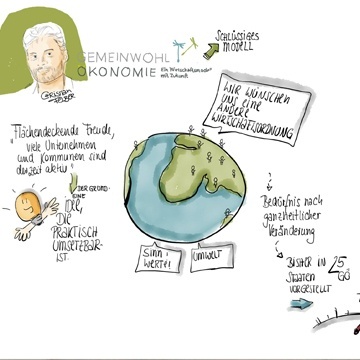 SCHLÜSSIGES
MODELL
GEMEINWOHL
ÖKONOMIE
Ein Wirtschaftsmodell
mit Zukunft
CHRISTIAN
FELBER
WIR WÜNSCHEN
UNS EINE
ANDERE
WIRTSCHAFTSORDNUNG
"Flächendeckende Freude,
viele Unternehmen
und Kommunen sind
derzeit aktiv"
DER GRUND:
EINE
IDEE,
DIE
PRAKTISCH
UMSETZBAR
IST.
Bedürfnis nach
ganzheitlicher
Veränderung
SINN +
WERTE!
UMWELT
BISHER IN 25
STAATEN
VORGESTELLT